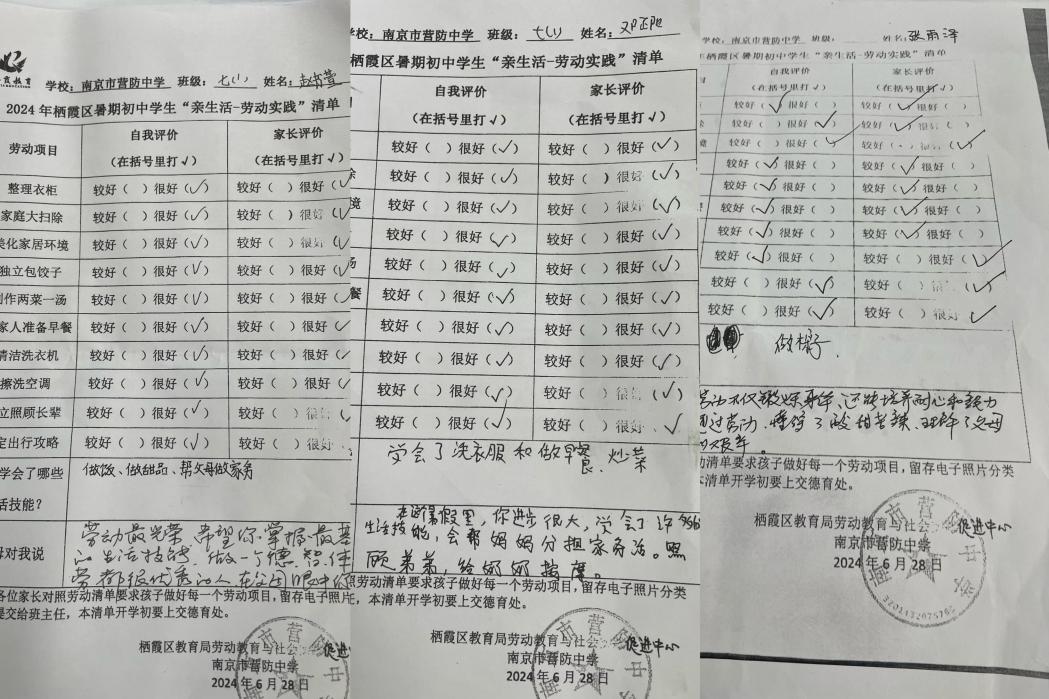 学校：南京市营防中学 班级：七(1) 姓名：
2024年栖霞区暑期初中学生“亲生活-劳动实践”清单
劳动项目 自我评价 家长评价
（在括号里打√） （在括号里打√）
整理衣柜 较好（ ）很好（√） 较好（ ）很好（√
家庭大扫除 较好（ ）很好（√） 较好（ ）很好（√
美化家居环境 较好（ ）很好（√） 较好（ ）很好（√
独立包饺子 较好（ ）很好（√） 较好（ ）很好（√
制作两菜一汤 较好（ ）很好（√） 较好（ ）很好（√
家人准备早餐 较好（ ）很好（√） 较好（ ）很好（√
清洁洗衣机 较好（ ）很好（√） 较好（ ）很好（√
擦洗空调 较好（ ）很好（√） 较好（ ）很好（√
立照顾长辈 较好（ ）很好（√） 较好（ ）很好（√
定出行攻略 较好（ ）很好（√） 较好（ ）很好（√
学会了哪些 做饭、做甜品、帮父母做家务
活技能？
母对我说
劳动最光荣 希望你掌握最基
生活技能，做一个德、智、体
劳都很优秀的人
各位家长对照劳动清单要求孩子做好每一个劳动项目，留存电子照片
提交给班主任，本清单开学初要上交德育处。
栖霞区教育局劳动教育与社会 促进中心
南京市营防中学
2024年6月28日
学校：南京市营防中学 班级：七(1) 姓名：
栖霞区暑期初中学生“亲生活-劳动实践”清单
自我评价 家长评价
（在括号里打√） （在括号里打√）
较好（ ）很好（√） 较好（ ）很好（√）
较好（ ）很好（√） 较好（ ）很好（√）
较好（ ）很好（√） 较好（ ）很好（√）
较好（ ）很好（√） 较好（ ）很好（√）
较好（ ）很好（√） 较好（ ）很好（√）
较好（ ）很好（√） 较好（ ）很好（√）
较好（ ）很好（√） 较好（ ）很好（√）
较好（ ）很好（√） 较好（ ）很好（√）
较好（ ）很好（√） 较好（ ）很好（√）
较好（ ）很好（√） 较好（ ）很好 √
学会了洗衣服和做早餐、炒菜
在这个暑假里，你进步很大，学会了许多
生活技能，会帮妈妈分担家务活。照
顾弟弟，给奶奶按摩。
劳动清单要求孩子做好每一个劳动项目，留存电子照片分类
，本清单开学初要上交德育处。
栖霞区教育局劳动教育与社会 促进中心
南京市营防中学
2024年6月28日
学校：南京市营防中学 班级： 姓名：张雨泽
栖霞区暑期初中学生“亲生活-劳动实践”清单
自我评价 家长评价
（在括号里打√） （在括号里打√）
较好（√）很好（ ） 较好（√）很好（ ）
较好（ ）很好（√） 较好（√）很好（ ）
较好（ ）很好（√） 较好（ ）很好（√）
较好（√）很好（ ） 较好（√）很好（ ）
较好（√）很好（ ） 较好（√）很好（ ）
较好（√）很好（ ） 较好（√）很好（ ）
较好（√）很好（ ） 较好（√）很好（ ）
较好（√）很好（ ） 较好（ ）很好（√）
较好（ ）很好（√） 较好（ ）很好（√）
较好（ ）很好（√） 较好（ ）很好 √
劳动不仅 身体，还能培养耐心和毅力
通过劳动，懂得了酸甜苦辣，理解了父母
的艰辛。
动清单要求孩子做好每一个劳动项目，留存电子照片分类
本清单开学初要上交德育处。
栖霞区教育局劳动教育与社会 促进中心
南京市营防中学
2024年6月28日
3201132075762